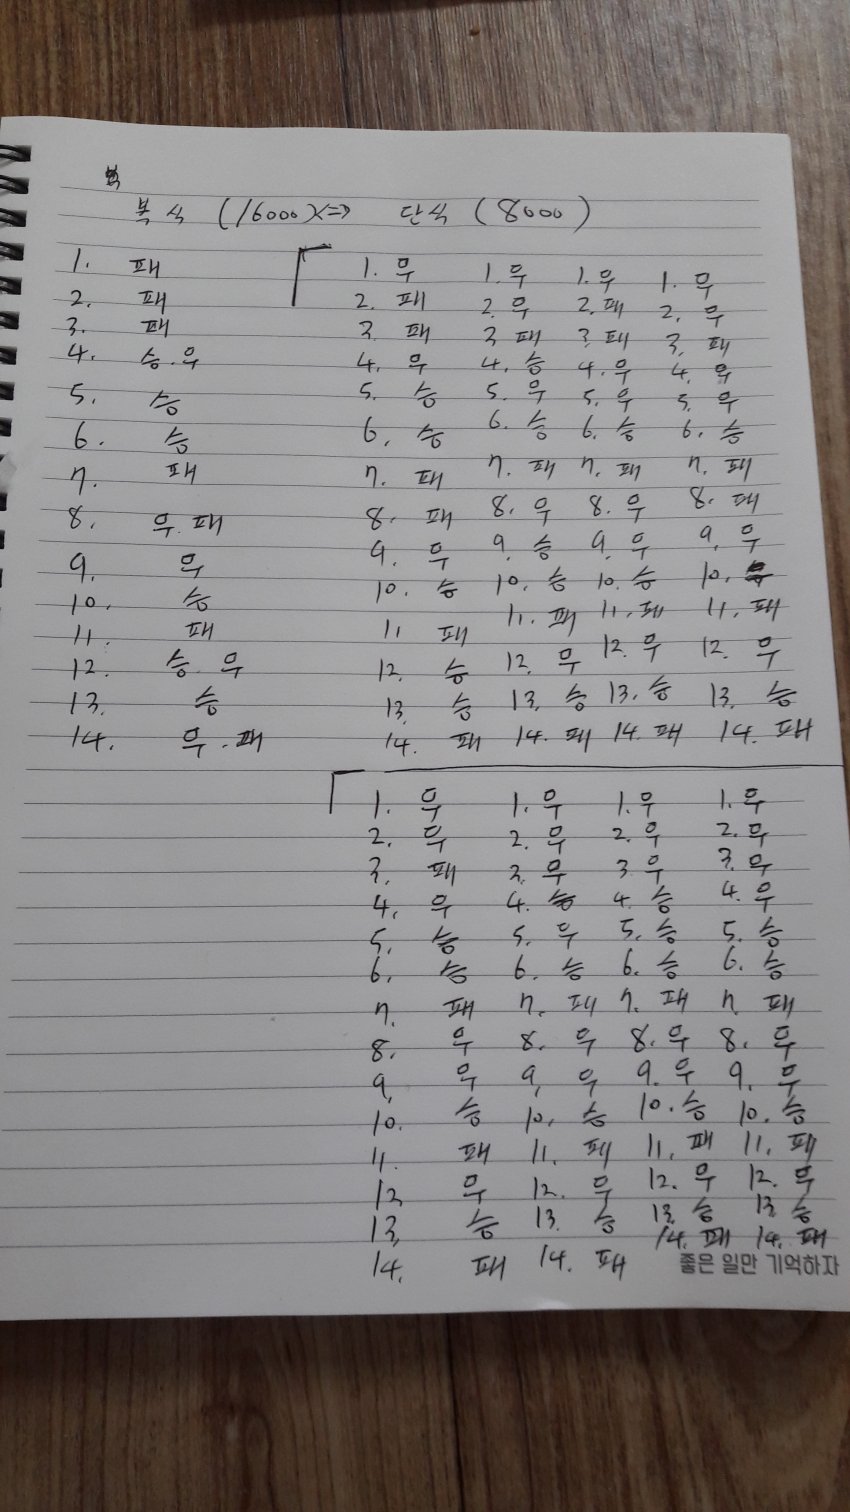 복식 (16000) <=> 단식 (8000)
1. 패
2. 패
3. 패
4. 승.우
5. 승
6. 승
7. 패
8. 우.패
9. 우
10. 승
11. 패
12. 승.우
13. 승
14. 우.패
1. 우 1. 우 1. 우 1. 우
2. 패 2. 우 2. 패 2. 우
3. 패 3. 패 3. 패 3. 패
4. 우 4. 승 4. 우 4. 우
5. 승 5. 우 5. 우 5. 우
6. 승 6. 승 6. 승 6. 승
7. 패 7. 패 7. 패 7. 패
8. 패 8. 우 8. 우 8. 패
9. 우 9. 승 9. 우 9. 우
10. 승 10. 승 10. 승 10.
11 패 11. 패 11. 패 11. 패
12. 승 12. 우 12. 우 12. 우
13. 승 13. 승 13. 승 13. 승
14. 패 14. 패 14. 패 14. 패
1. 우 1. 우 1. 우 1. 우
2. 우 2. 우 2. 우 2. 우
3. 패 3. 우 3. 우 3. 우
4. 우 4. 승 4. 승 4. 우
5. 승 5. 우 5. 승 5. 승
6. 승 6. 승 6. 승 6. 승
7. 패 7. 패 7. 패 7. 패
8. 우 8. 우 8. 우 8. 우
9. 우 9. 우 9. 우 9. 우
10. 승 10. 승 10. 승 10. 승
11. 패 11. 패 11. 패 11. 패
12 우 12. 우 12. 우 12. 우
13. 승 13. 승 13. 승 13. 승
14. 패 14. 패 14. 패 14. 패
좋은 일만 기억하자